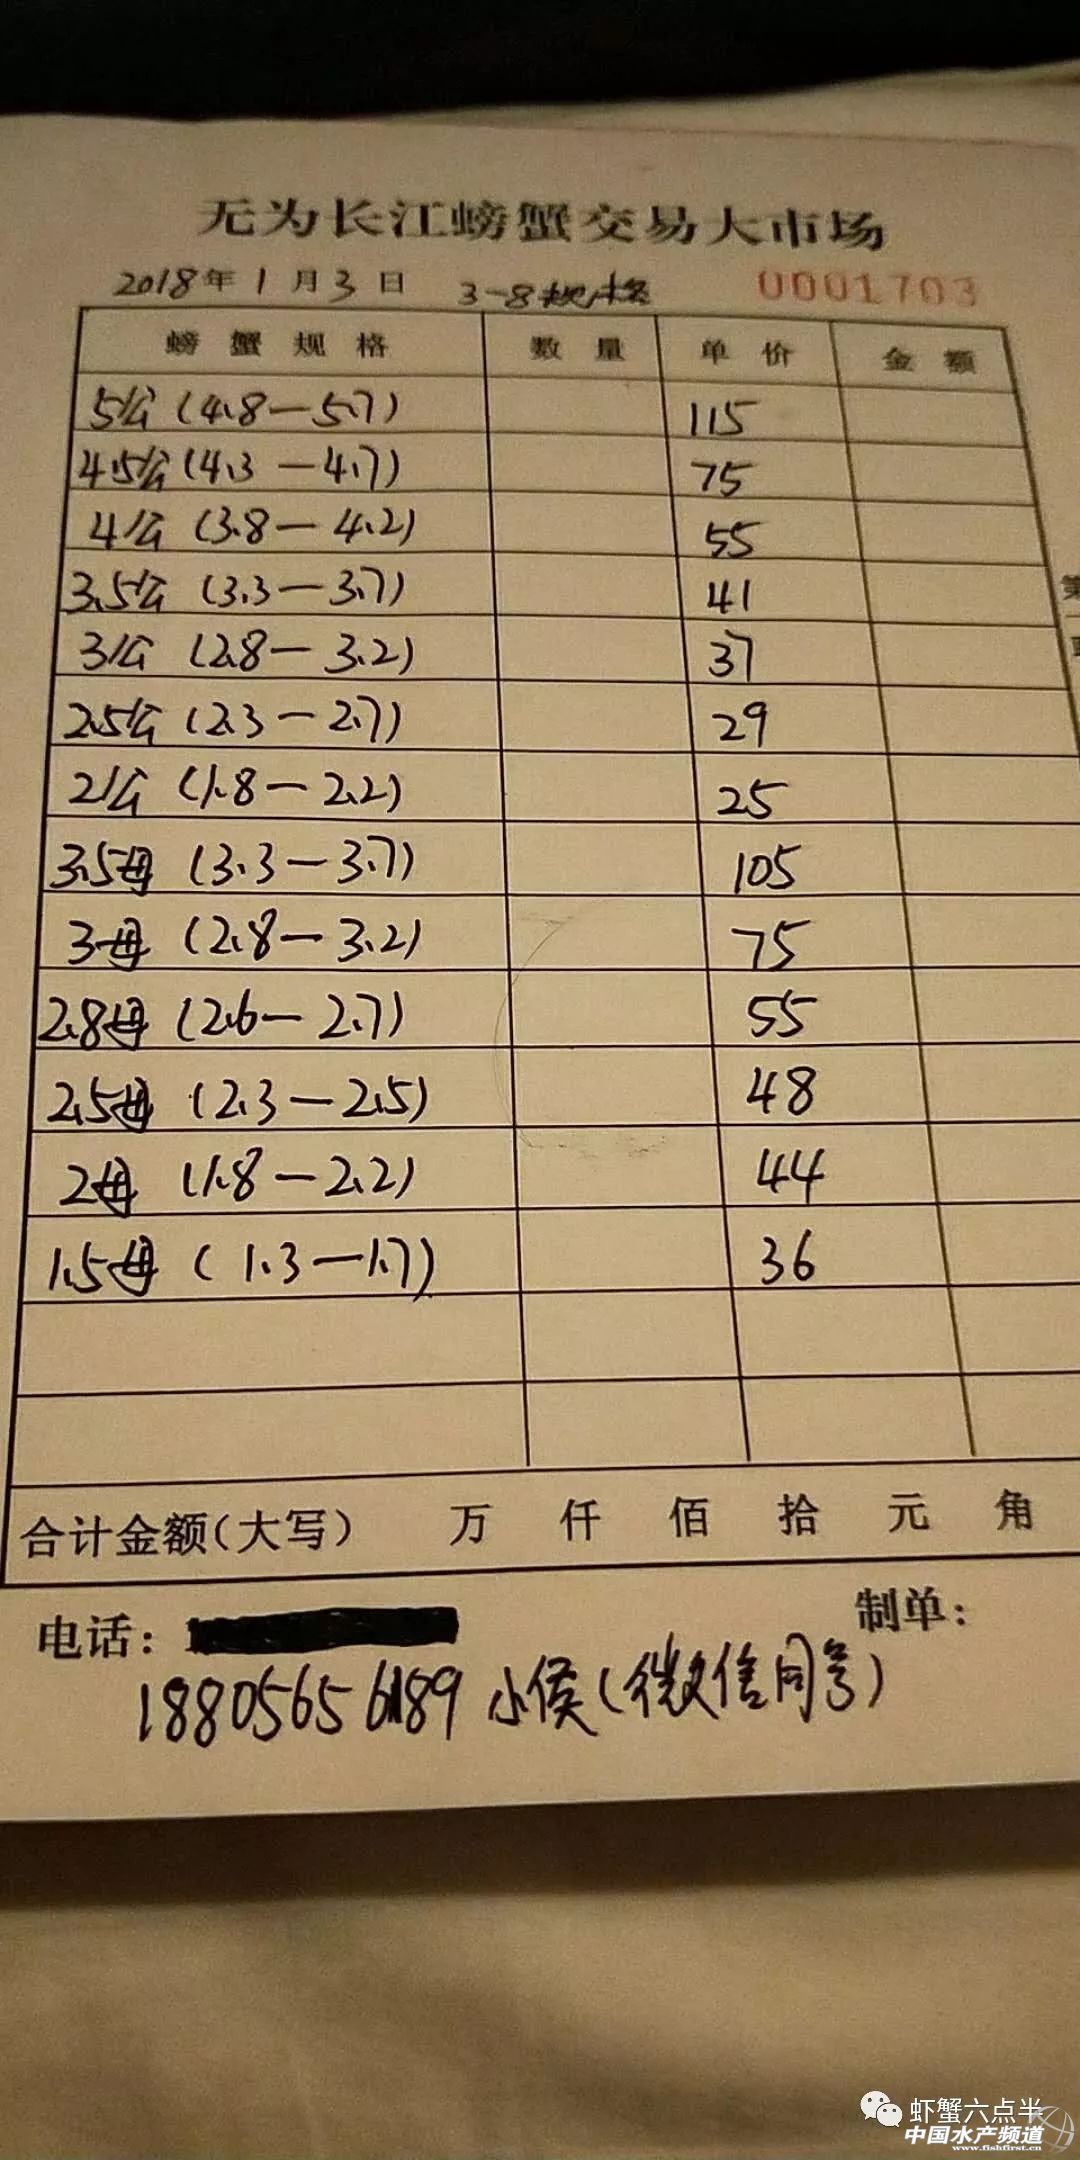 无为长江螃蟹交易大市场
2018年1月3日 3-8规格 0001703
螃蟹规格 数量 单价 金额
5公(4.8—5.7) 115
4.5公(4.3—4.7) 75
4公(3.8—4.2) 55
3.5公(3.3—3.7) 41
3公(2.8—3.2) 37
2.5公(2.3—2.7) 29
2公(1.8—2.2) 25
3.5母(3.3—3.7) 105
3母(2.8—3.2) 75
2.8母(2.6—2.7) 55
2.5母(2.3—2.5) 48
2母(1.8—2.2) 44
1.5母(1.3—1.7) 36
合计金额(大写) 万 仟 佰 拾 元 角
电话: 制单:
18805656189 小侯(微信同号)
第一
虾蟹六点半
中国水产频道
www.fishfirst.cn